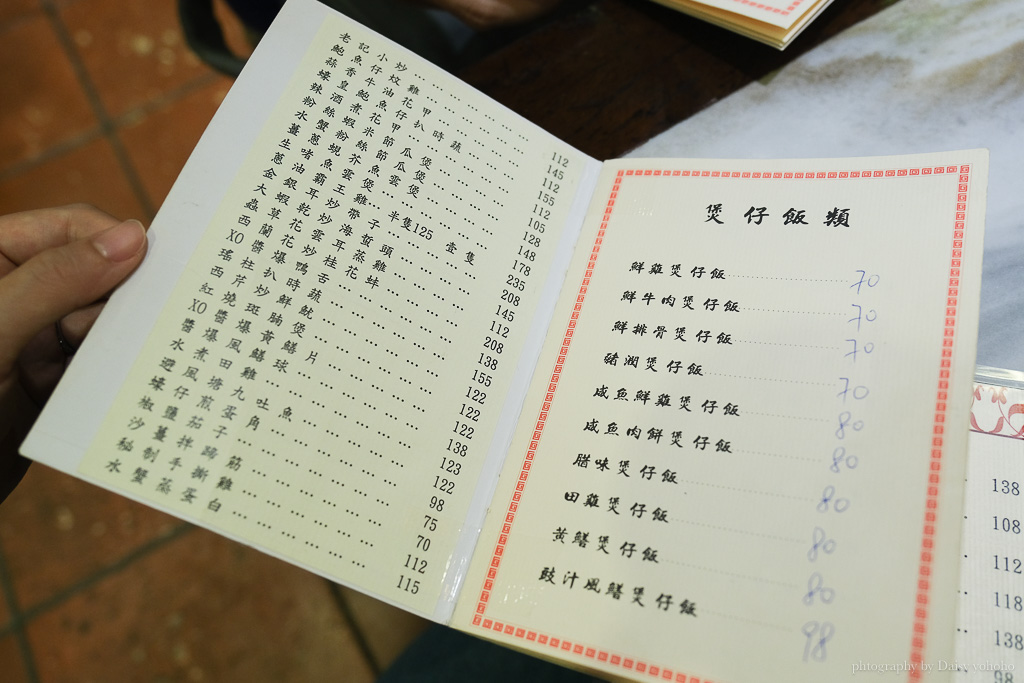 老記小炒 ... 112
鮑魚仔炆雞 ... 145
蒜香牛油花甲 ... 112
蠔皇鮑魚仔扒時蔬 ... 155
辣酒煮花甲 ... 112
粉絲蝦米節瓜煲 ... 105
水蟹粉絲節瓜煲 ... 128
148
生啫魚雲煲 ... 178
蔥油霸王雞 半隻125 壹隻 235
208
145
112
西蘭花炒桂花蚌 ... 208
XO醬爆鴨舌 ... 138
瑤柱扒時蔬 ... 155
西芹炒鮮魷 ... 122
紅燒斑腩煲 ... 122
XO醬爆黃鱔片 ... 122
醬爆風鱔球 ... 138
水煮田雞 ... 123
避風塘九吐魚 ... 122
蠔仔煎蛋角 ... 98
椒鹽茄子 ... 75
沙薑拌蹄筋 ... 70
秘制手撕雞 ... 112
水蟹蒸蛋白 ... 115
煲仔飯類
鮮雞煲仔飯 70
鮮牛肉煲仔飯 70
鮮排骨煲仔飯 70
豬潤煲仔飯 70
咸魚鮮雞煲仔飯 80
咸魚肉餅煲仔飯 80
腊味煲仔飯 80
田雞煲仔飯 80
黃鱔煲仔飯 80
豉汁風鱔煲仔飯 98
138
108
112
118
138
98
photography by Daisy yohoho